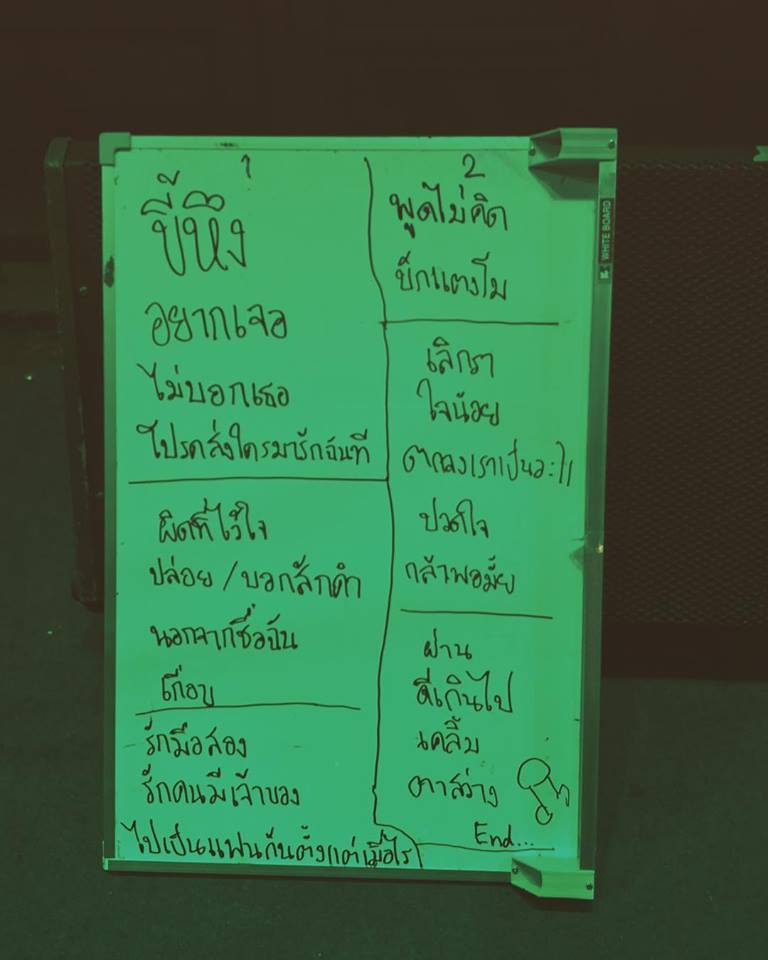 1
ขี้หึง
อยากเจอ
ไม่บอกเธอ
โปรดส่งใครมารักฉันที
ผิดที่ไว้ใจ
ปล่อย / บอกสักคำ
นอกจากชื่อฉัน
เกือบ
รักมือสอง
รักคนมีเจ้าของ
ไปเป็นแฟนกันตั้งแต่เมื่อไร
2
พูดไม่คิด
บักแตงโม
เลิกรา
ใจน้อย
ตกลงเราเป็นอะไร
ปวดใจ
กล้าพอมั้ย
ผ่าน
ดีเกินไป
เคลิ้ม
ตาสว่าง
End...
WHITE BOARD